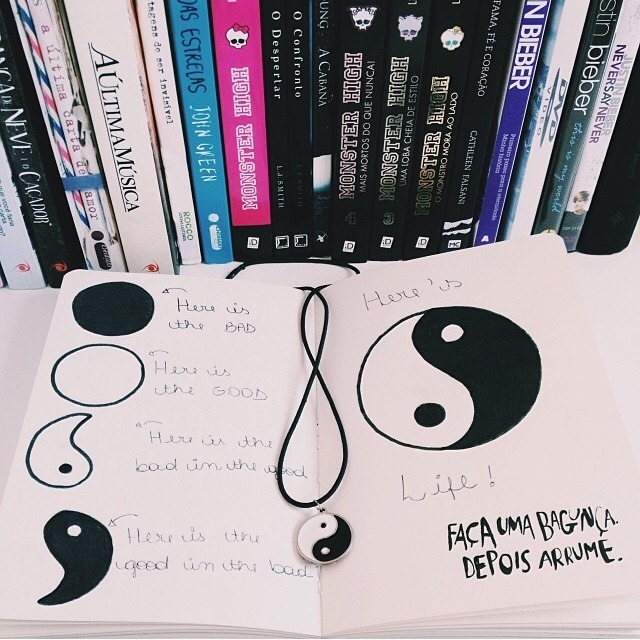 BRANCA DE NEVE E O CAÇADOR
a última carta de amor
A ÚLTIMA MÚSICA
ROCCO
DAS ESTRELAS JOHN GREEN
MONSTER HIGH
ID
O Despertar L.J. SMITH
O Confronto L.J. SMITH
A CABANA
MONSTER HIGH
MAIS MORTOS DO QUE NUNCA!
4
ID
MONSTER HIGH
UMA LOBA CHEIA DE ESTILO
3
ID
MONSTER HIGH
O MONSTRO MORA AO LADO
ID
FAMA, FÉ E CORAÇÃO
CATHLEEN FALSANI
BIEBER
Primeiro passo para a eternidade
DVD
VIDEO
justin bieber
my world
NEVER SAY NEVER
Here is
the BAD
Here is
the GOOD
Here is the
bad in the good
Here is the
good in the bad
Here's
Life!
FAÇA UMA BAGUNÇA.
DEPOIS ARRUME.